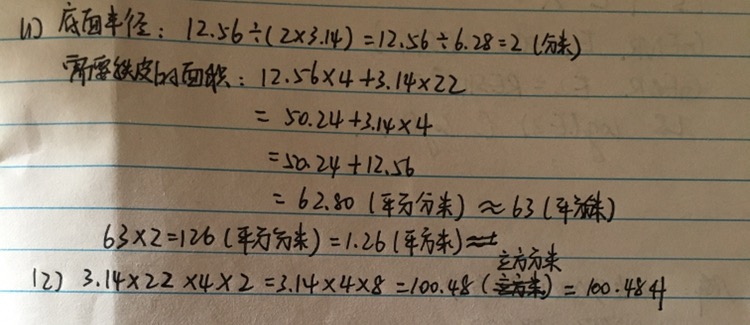 (1) 底面半径：12.56÷(2×3.14)=12.56÷6.28=2(分米)
所需铁皮的面积：12.56×4+3.14×22
=50.24+3.14×4
=50.24+12.56
=62.80(平方分米)≈63(平方分米)
63×2=126(平方分米)=1.26(平方米)
立方分米
(2) 3.14×22×4×2=3.14×4×8=100.48()=100.48升